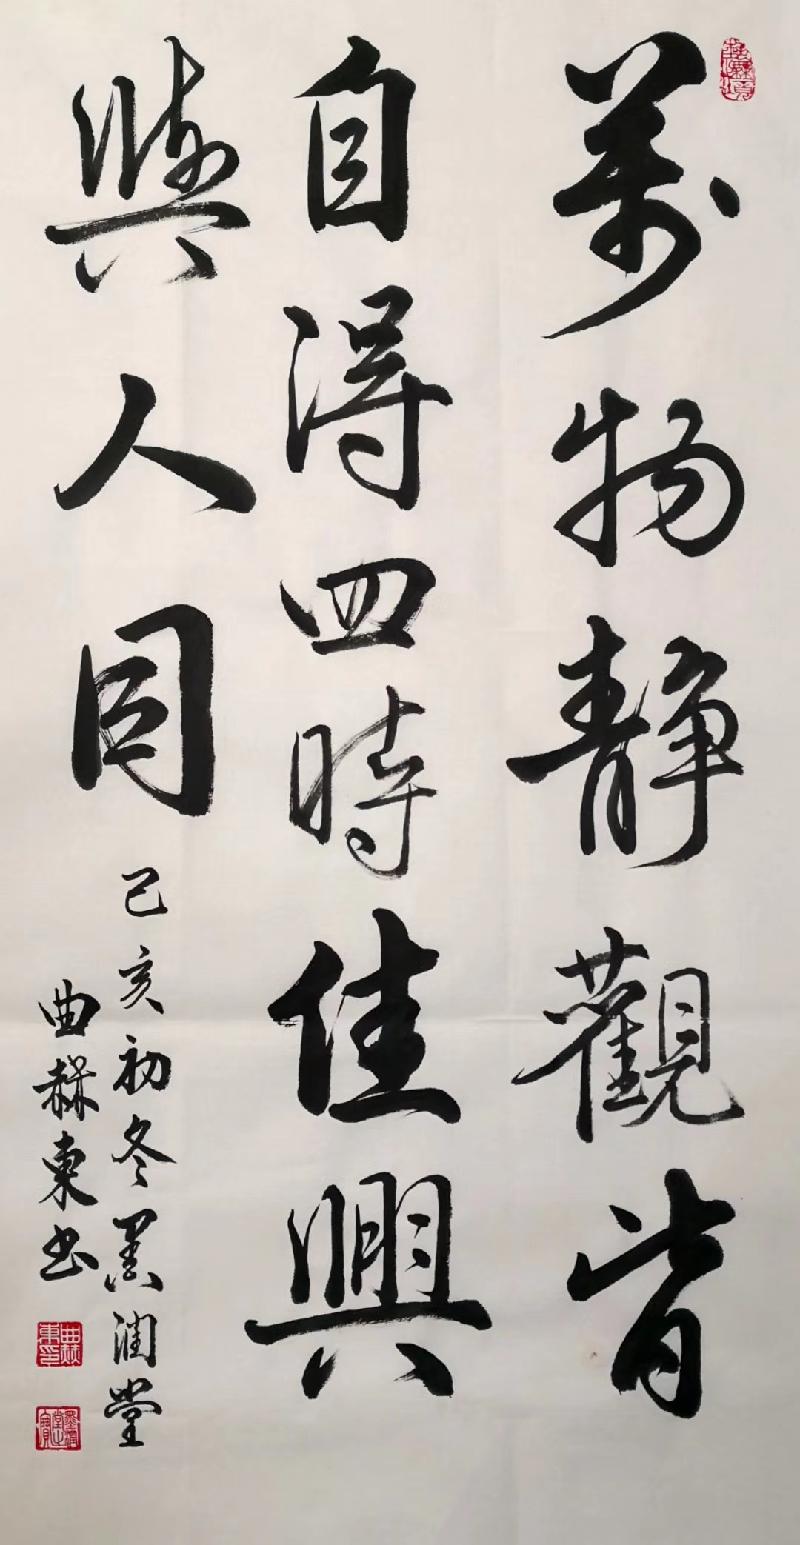 萬物靜觀皆
自得四時佳興
與人同
己亥初冬墨潤堂
曲赫東书